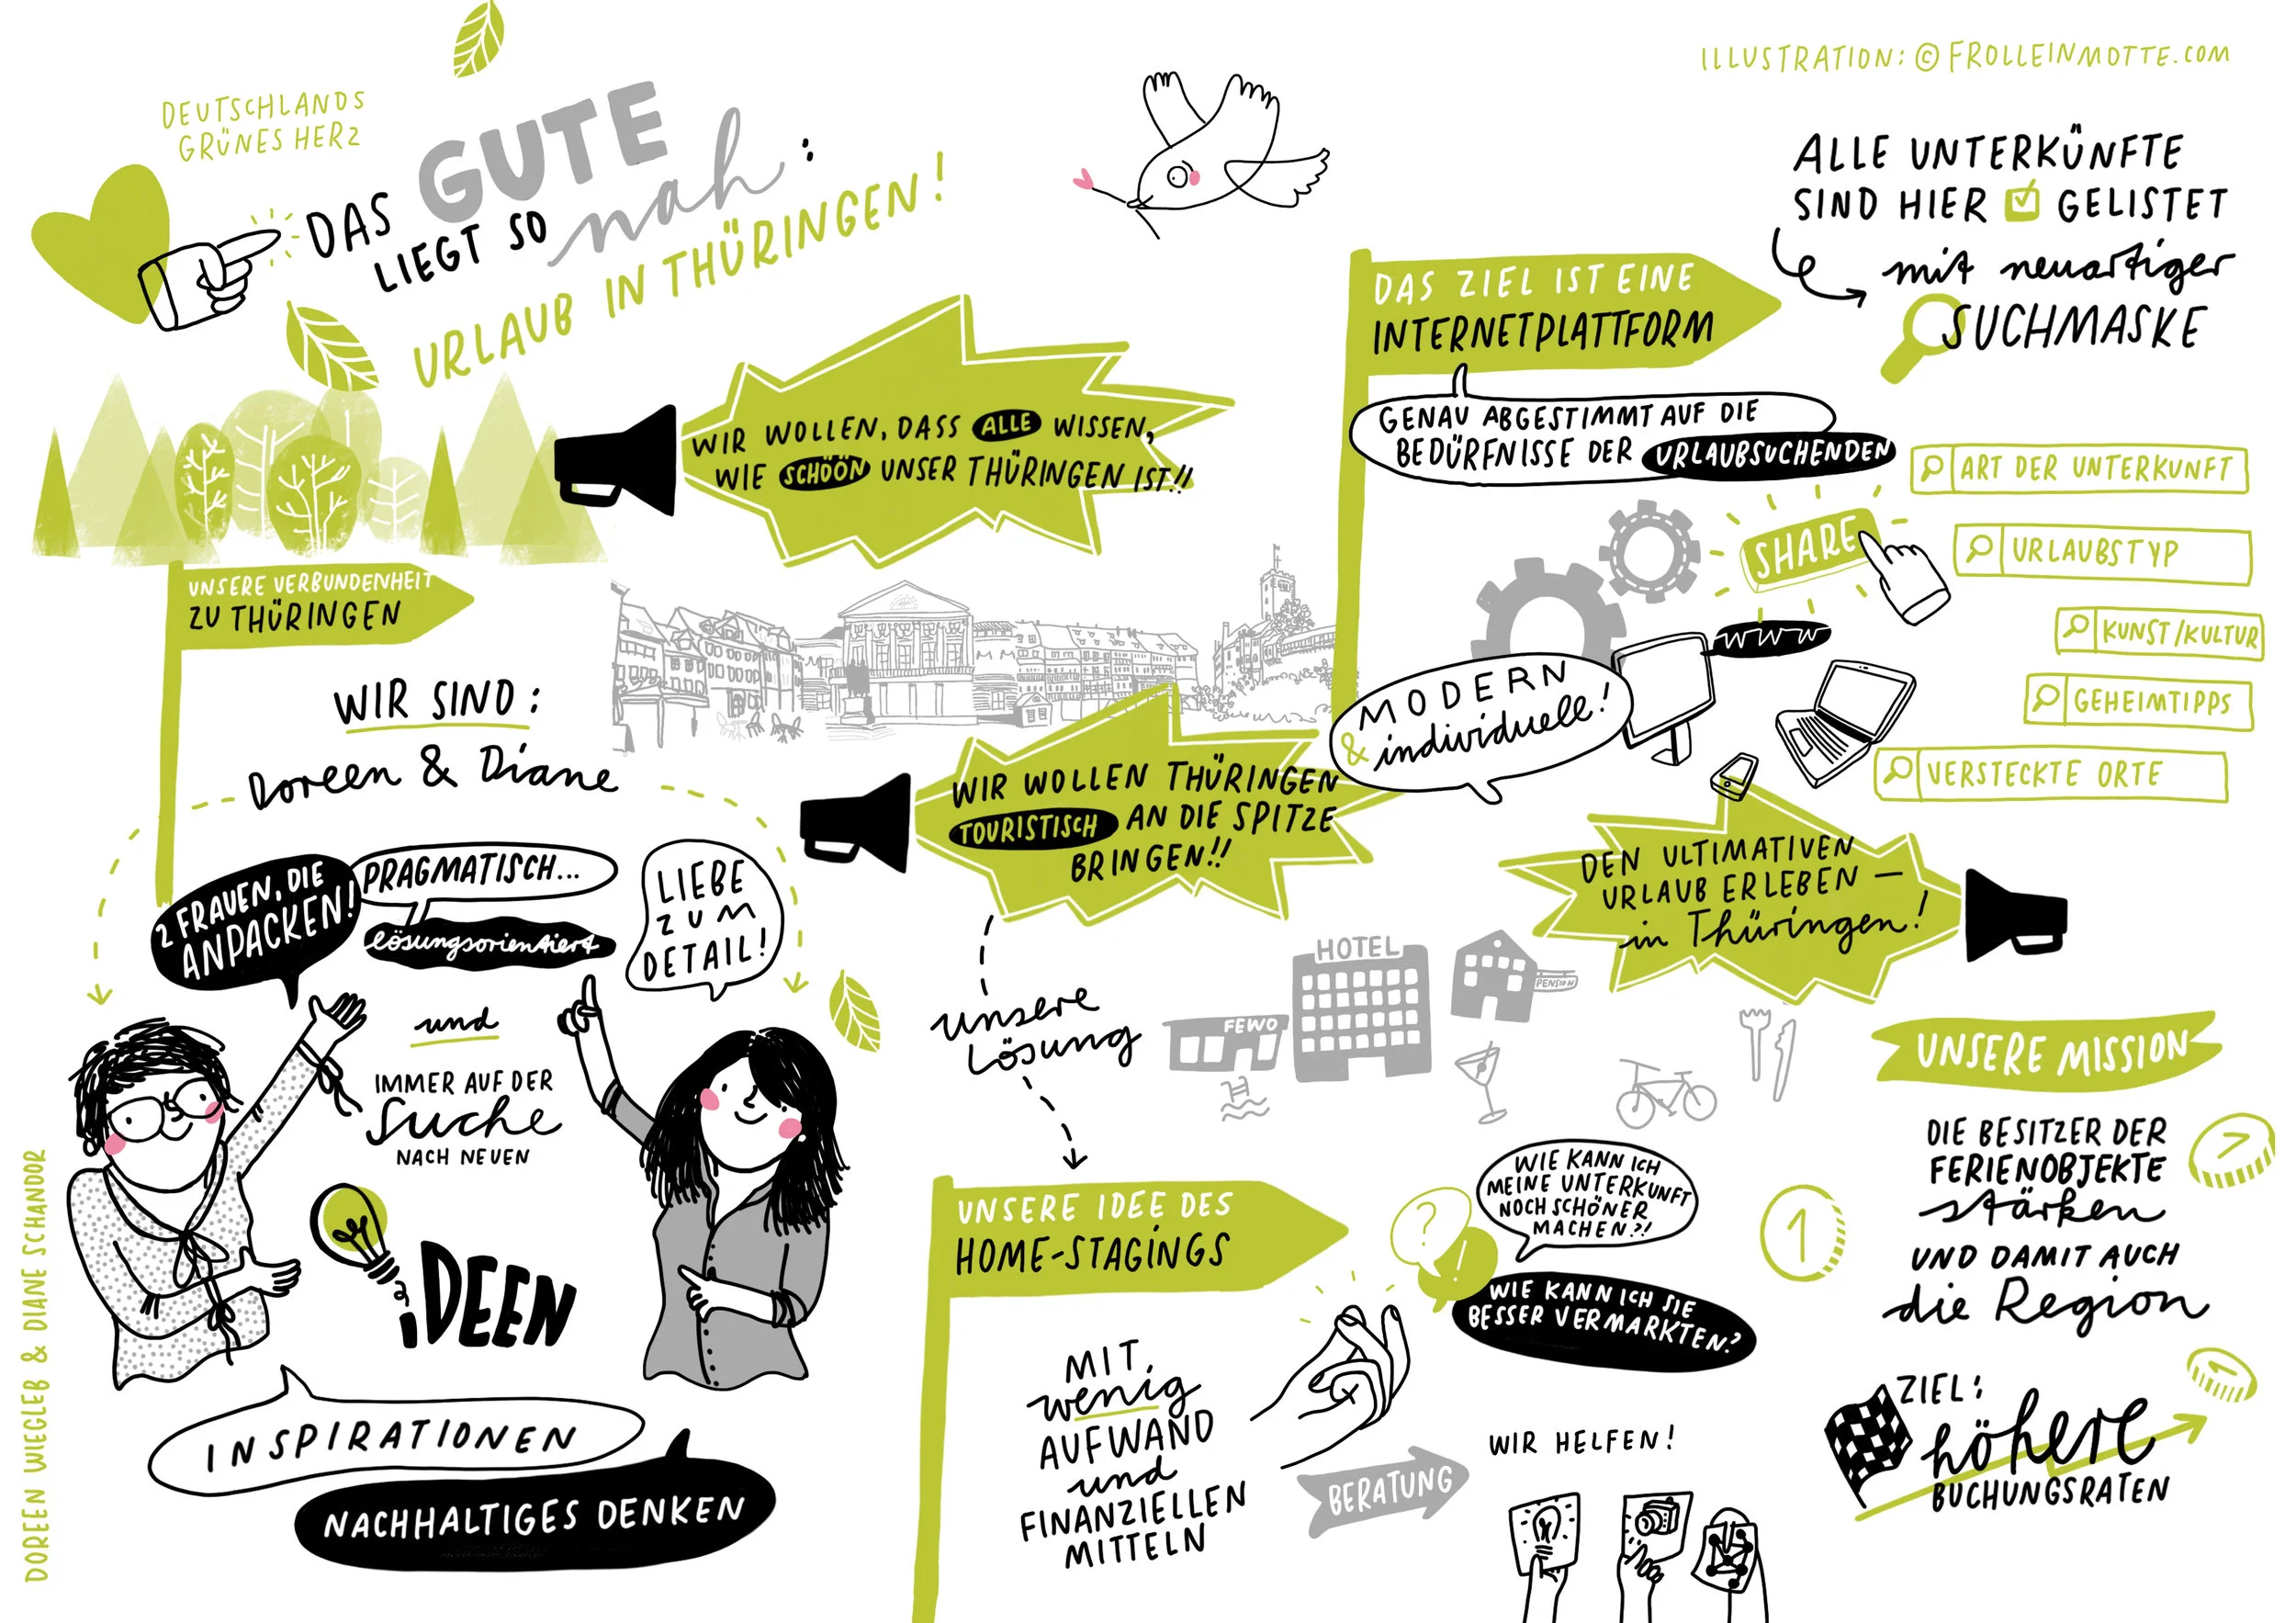 ILLUSTRATION: © FROLLEINMOTTE.COM
DEUTSCHLANDS
GRÜNES HERZ
DAS GUTE
LIEGT SO nah:
URLAUB IN THÜRINGEN!
WIR WOLLEN, DASS ALLE WISSEN,
WIE SCHÖÖN UNSER THÜRINGEN IST!!
UNSERE VERBUNDENHEIT
ZU THÜRINGEN
WIR SIND:
Doreen & Diane
2 FRAUEN, DIE
ANPACKEN!
PRAGMATISCH...
lösungsorientiert
LIEBE
ZUM
DETAIL!
und
IMMER AUF DER
Suche
NACH NEUEN
iDEEN
INSPIRATIONEN
NACHHALTIGES DENKEN
DOREEN WIEGLEB & DIANE SCHANDOR
WIR WOLLEN THÜRINGEN
TOURISTISCH AN DIE SPITZE
BRINGEN!!
unsere
Lösung
UNSERE IDEE DES
HOME-STAGINGS
MIT
wenig
AUFWAND
und
FINANZIELLEN
MITTELN
?
!
WIE KANN ICH
MEINE UNTERKUNFT
NOCH SCHÖNER
MACHEN?!
WIE KANN ICH SIE
BESSER VERMARKTEN?
BERATUNG
WIR HELFEN!
DAS ZIEL IST EINE
INTERNETPLATTFORM
GENAU ABGESTIMMT AUF DIE
BEDÜRFNISSE DER URLAUBSUCHENDEN
ALLE UNTERKÜNFTE
SIND HIER GELISTET
mit neuartiger
SUCHMASKE
ART DER UNTERKUNFT
URLAUBSTYP
KUNST/KULTUR
GEHEIMTIPPS
VERSTECKTE ORTE
SHARE
www
MODERN
& individuell!
DEN ULTIMATIVEN
URLAUB ERLEBEN –
in Thüringen!
HOTEL
PENSION
FEWO
UNSERE MISSION
DIE BESITZER DER
FERIENOBJEKTE
stärken
UND DAMIT AUCH
die Region
1
1
1
ZIEL:
höhere
BUCHUNGSRATEN